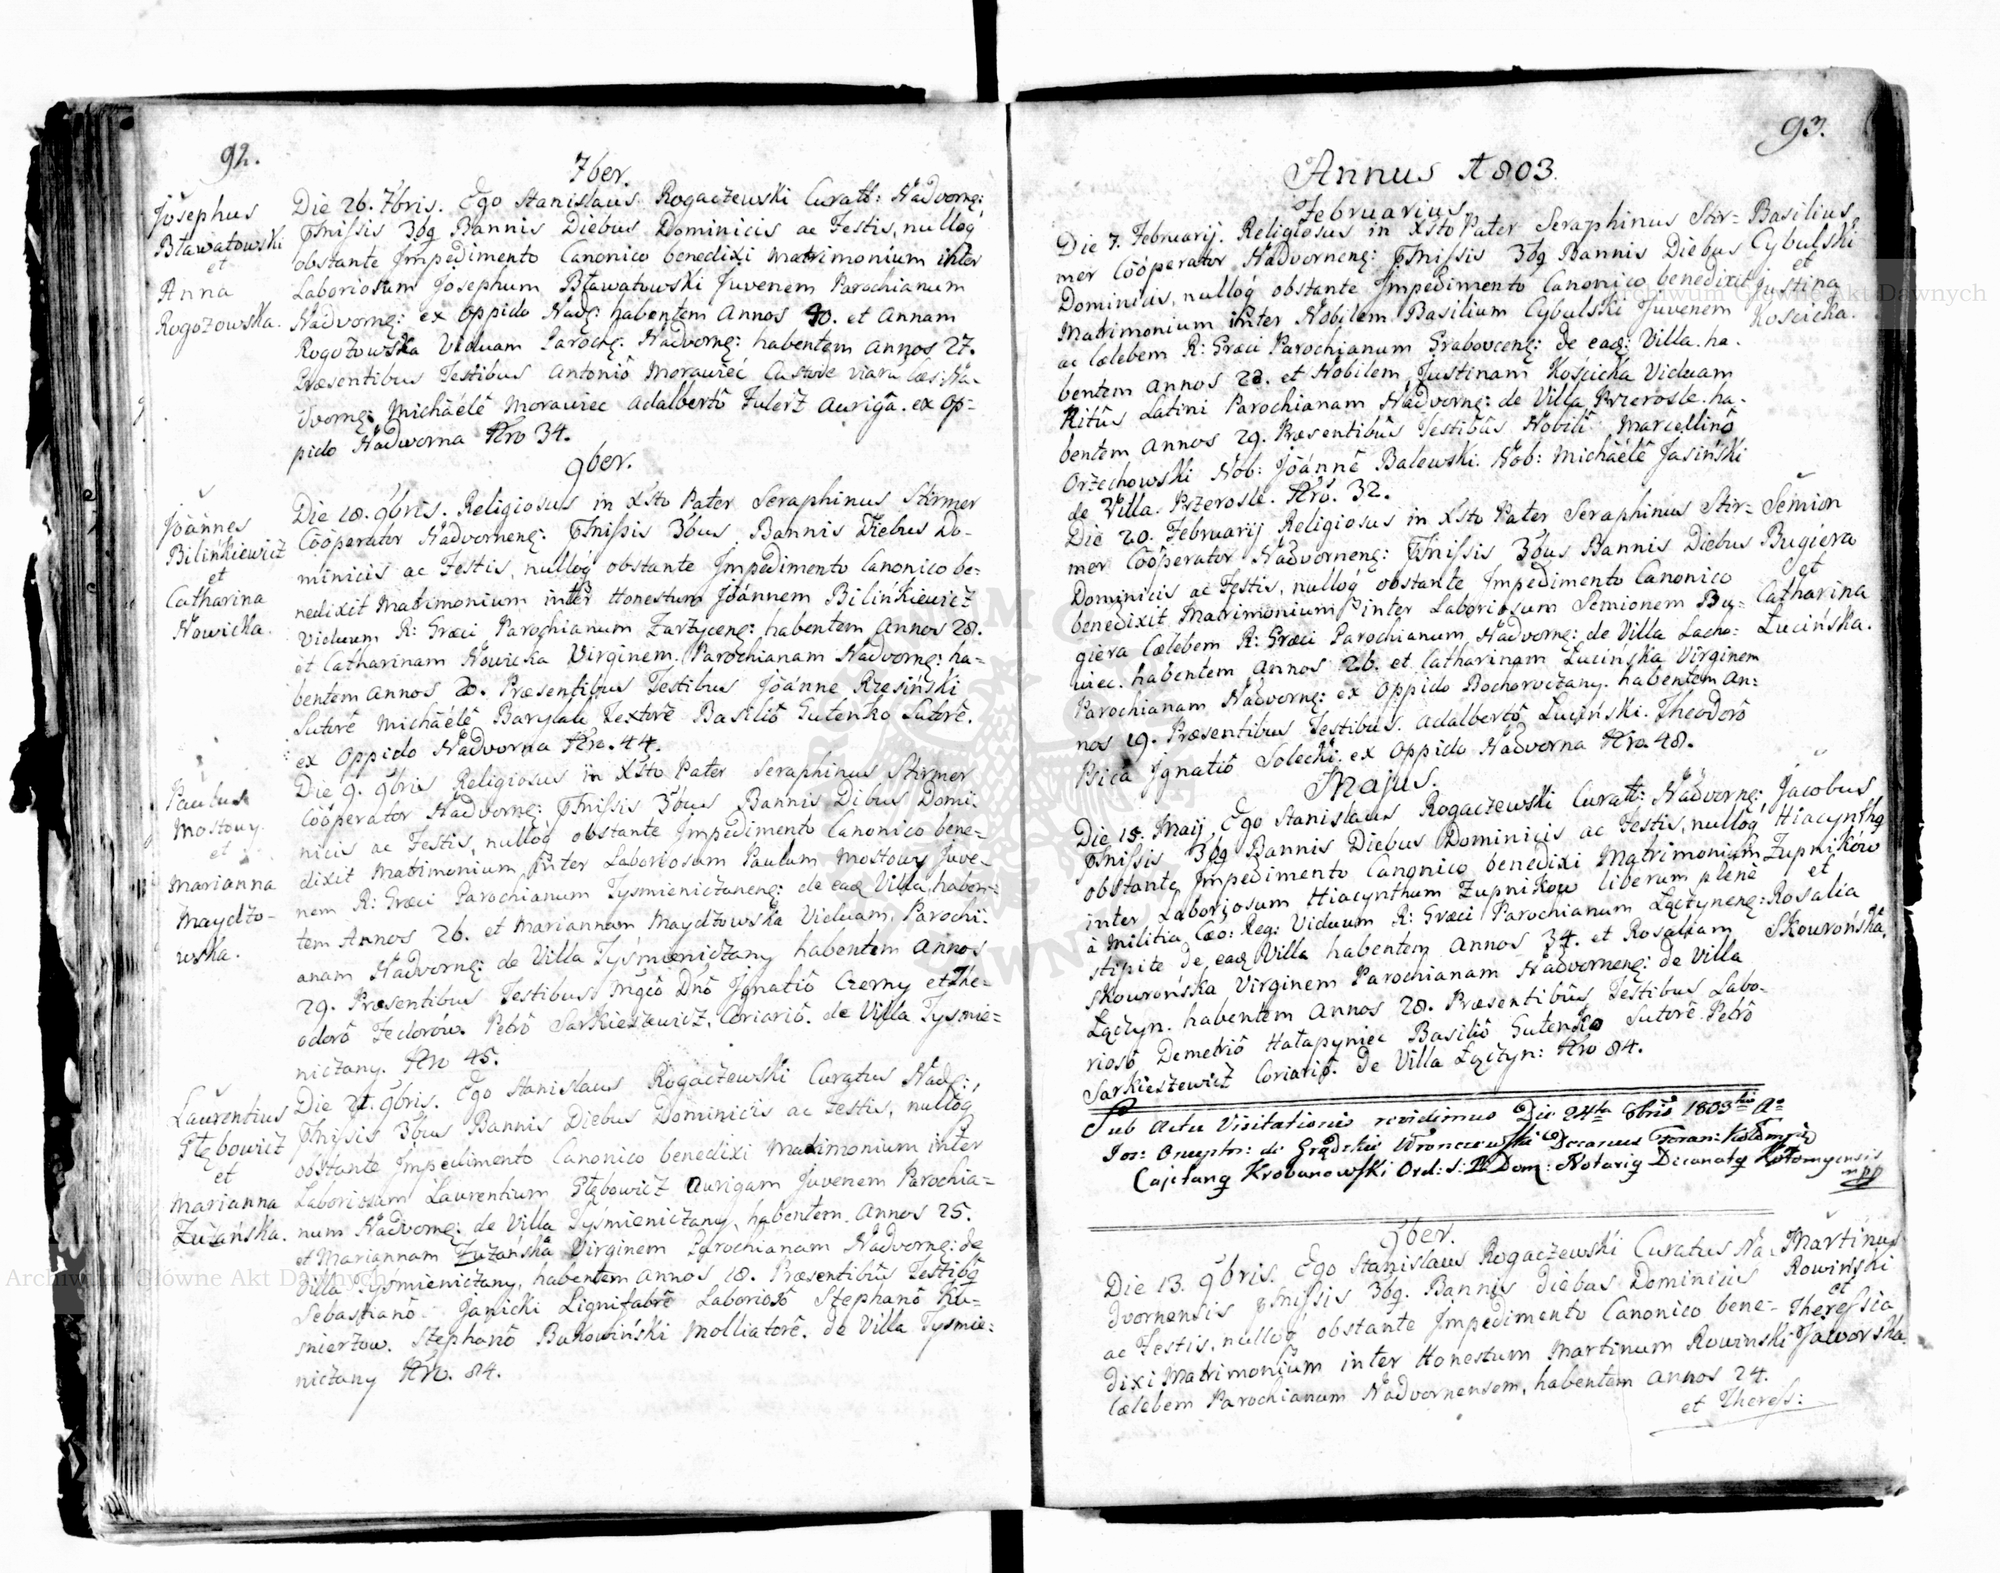 92.
7ber.
Josephus
Bławatowski
et
Anna
Rogozowska.
Die 26. 7bris. Ego Stanislaus Rogaczewski Curatt: Nadvorng:
Bannis Diebus Dominicis ac Festis, nullog
obstante Impedimento Canonico benedixi Matrimonium inter
Laboriosum Josephum Bławatowski Juvenem Parochianum
Nadvorng: ex Oppido Nadg: habentem Annos 30. et Annam
Rogozowska Viduam Parochg: Nadvorng: habentem Annos 27.
Præsentibus Testibus Antoniô Morawiec Custode viaru
dvorng: Michäélê Morawiec Adalbertô Fulerz Aurigâ. ex Op=
pido Nadworna Nro 34.
9ber.
Jöännes
Bilińkiewicz
et
Catharina
Nowicka.
Die 18. 9bris. Religiosus in Xsto Pater Seraphinus Stirmer
Cöoperator Nadvorneng: 3bus Bannis Diebus Do-
minicis ac Festis, nullog obstante Impedimento Canonico be=
nedixit Matrimonium inter Honestum Jöánnem Bilińkiewicz
Viduum R: Græci Parochianum Zarzyceng: habentem Annos 28.
et Catharinam Nowicka Virginem Parochianam Nadvorng: ha=
bentem Annos 20. Præsentibus Testibus Jöánne Rzesiński
Sutorê Michäélê Baryłak Textorê Basiliô Gutenko Sutorê.
ex Oppido Nadvorna Nro. 44.
Paulus
Mostowy
et
Marianna
Maydzo-
wska.
Die 9. 9bris Religiosus in Xsto Pater Seraphinus Stirmer
Cöoperator Nadvorng: 3bus Bannis Dibus Domi-
nicis ac Festis, nullog obstante Impedimento Canonico bene=
dixit Matrimonium inter Laboriosum Paulum Mostowy Juve-
nem R: Græci Parochianum Tysmieniczaneng: de eag Villa, haben=
tem Annos 26. et Mariannam Maydzowska Viduam, Parochi-
anam Nadvorng: de Villa Tyśmieniczany habentem Annos
29. Præsentibus Testibus Dnô Jgnatiô Czerny et The=
odorô Fedorów. Petrô Sarkieszewicz. Coriariô. de Villa Tysmie=
niczany. Nro 45.
Laurentius
Płębowicz
et
Marianna
Zuzańska.
Die 21. 9bris. Ego Stanislaus Rogaczewski Curatus Nadg:,
3bus Bannis Diebus Dominicis ac Festis, nullog
obstante Impedimento Canonico benedixi Matrimonium inter
Laboriosum Laurentium Płębowicz Aurigam Juvenem Parochia=
num Nadvorng: de Villa Tyśmieniczany, habentem Annos 25.
et Mariannam Zuzańska Virginem Parochianam Nadvorng: de
Villa Tysmieniczany, habentem Annos 18. Præsentibus Testibg
Sebastianô Janicki Lignifabrê Laboriosô Stephanô Ku=
smierzow. Stephanô Bukowiński Molliatorê. de Villa Tysmie:
niczany Nro. 84.
93.
Annus 1803.
Februarius
Die 7. Februarij. Religiosus in Xsto Pater Seraphinus Stir=
mer Cöoperator Nadvorneng: 3bg Bannis Diebus
Dominicis, nullog obstante Impedimento Canonico benedixit
Matrimonium inter Nobilem Basilium Cybulski Juvenem
ac Cælebem R: Græci Parochianum Grabovceng: de eag: Villa. ha-
bentem Annos 28. et Nobilem Justinam Kościcka Viduam
Ritûs Latini Parochianam Nadvorng: de Villa Przerosle. ha-
bentem Annos 29. Præsentibus Testibus Nobili Marcellinô
Orzechowski Nob: Jöánnê Balewski. Nob: Michäélê Jasiński
de Villa. Przerosle. Nro. 32.
Basilius
Cybulski
et
Justina
Kościcka.
Die 20. Februarij Religiosus in Xsto Pater Seraphinus Stir=
mer Cöoperator Nadvorneng: 3bus Bannis Diebus
Dominicis ac Festis, nullog obstante Impedimento Canonico
benedixit Matrimonium inter Laboriosum Semionem Bu=
giera Cælebem R: Græci Parochianum Nadvorng: de Villa Lacho:
wiec. habentem Annos 26. et Catharinam Łucińska Virginem
Parochianam Nadvorng: ex Oppido Bohorodczany. habentem An:
nos 19. Præsentibus Testibus. Adalbertô Łuciński. Theodorô
Psica Jgnatiô Solecki. ex Oppido Nadvorna Nro. 48.
Semion
Bugiera
et
Catharina
Łucińska.
Majus.
Die 15. Maij Ego Stanislaus Rogaczewski Curatt: Nadvorng:
3bg Bannis Diebus Dominicis ac Festis, nullog
obstante Impedimento Canonico benedixi Matrimonium
inter Laboriosum Hiacynthum Zupnikow liberum plenè
à Militia Cæo: Reg: Viduum R: Græci Parochianum Łączyneng:
stipite de eag Villa habentem Annos 34. et Rosaliam
Skowrońska Virginem Parochianam Nadvorneng: de Villa
Łączyn. habentem Annos 28. Præsentibus Testibus Labo-
riosô Demetriô Hałapyniec Basiliô Gutenko Sutorê Petrô
Sarkieszewicz Coriariô. de Villa Łączyn: Nro 84.
Jacobus
Hiacynthg
Zupników
et
Rosalia
Skowrońska.
Sub Actu Visitationis revidimus Die 24ta 8bris 1803tio Ao
Jos: Onuphr: de Grądzkie Wronczewski Decanus Foran: Kołomyie
Cajetang Krobanowski Ord: S: P. Dom: Notarig Decanatg Kołomyensis
mpp
9ber.
Die 13. 9bris. Ego Stanislaus Rogaczewski Curatus Na-
dvornensis 3bg. Bannis diebus Dominicis
ac Festis, nullog obstante Impedimento Canonico bene-
dixi Matrimonium inter Honestum Martinum Rowinski
Cælebem Parochianum Nadvornensem, habentem Annos 24.
et Theress:
Martinus
Rowiński
et
Theressia
Jaworska
Archiwum Główne Akt Dawnych
Archiwum Główne Akt Dawnych